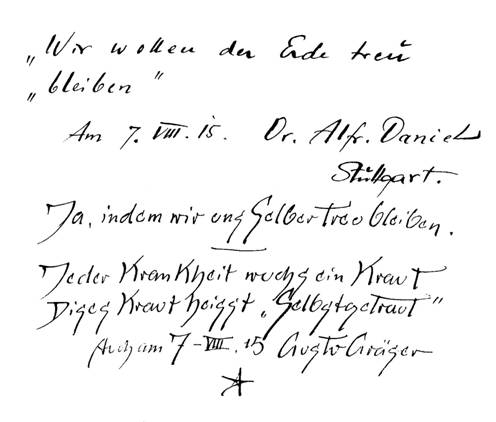 „Wir wollen der Erde treu
„bleiben“
Am 7. VIII. 15. Dr. Alfr. Daniel
Stuttgart.
Ja, indem wir uns Selber Treu bleiben.
Jeder Krankheit wuchs ein Kraut
Dises Kraut heisst „Selbstgetraut“
Auch am 7-VIII. 15 Gusto Gräser